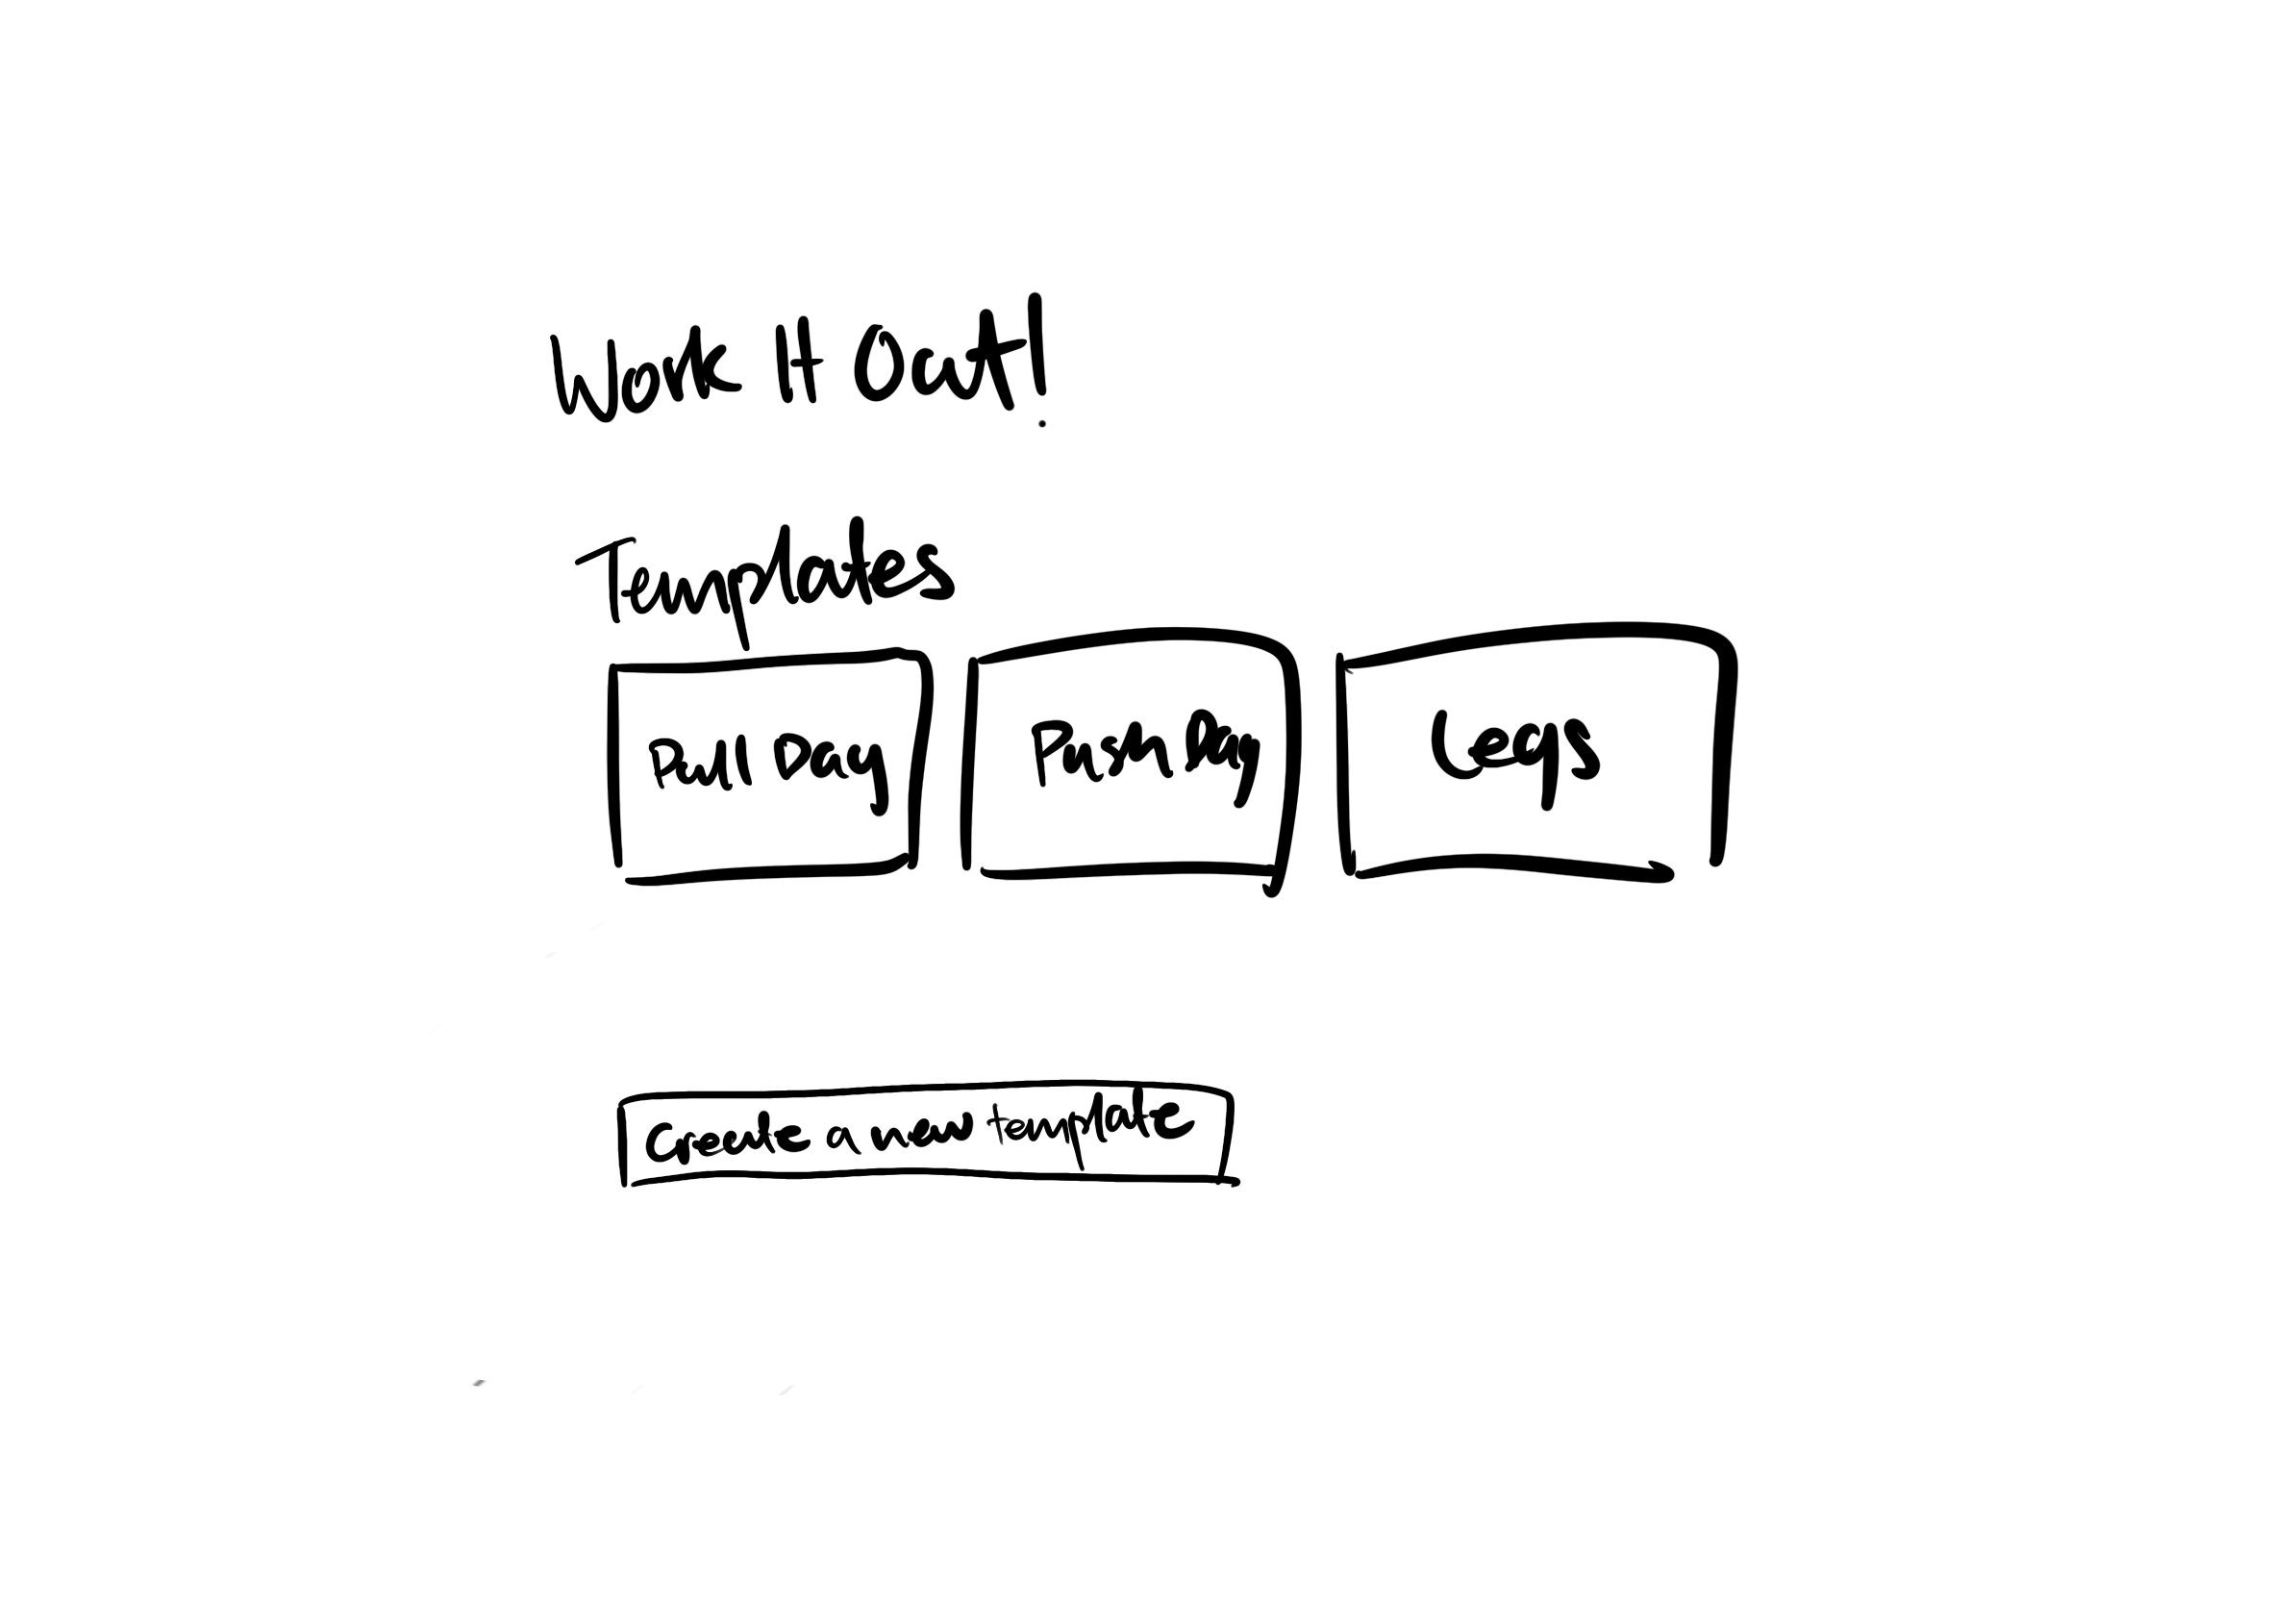 Work It Out!
Templates
Pull Day
Push Day
Legs
Create a new template